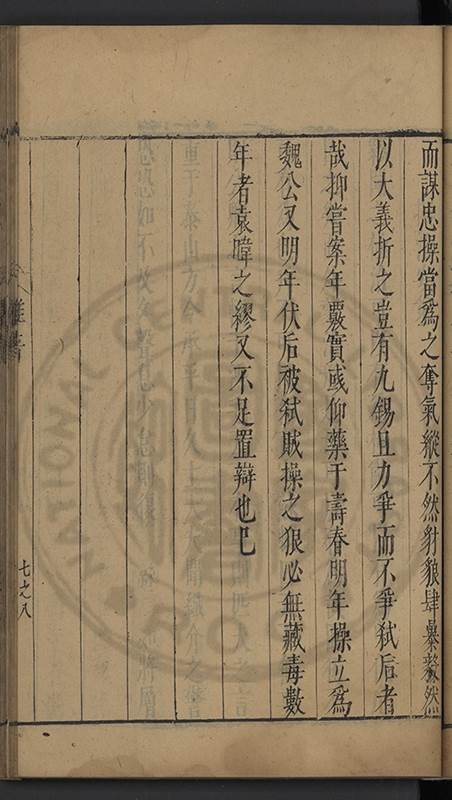 而謀忠操當爲之奪氣縱不然豺狼肆暴𥟖然
以大義折之豈有九錫且力爭而不爭弒后者
哉抑嘗案年覈實彧仰藥于壽春明年操立爲
魏公又明年伏后被弒賊操之狠必無藏毒數
年者袁暐之繆又不足置辯也已
雜著
七之八